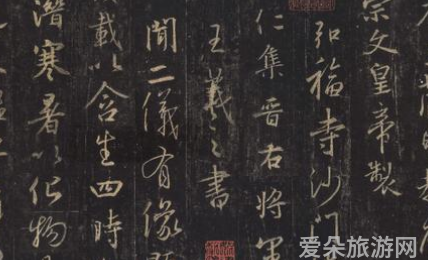 宗文皇帝製
弘福寺沙門
仁集晉右將軍
王羲之書
聞二儀有像
載以含生四時
潛寒暑以化物
爱朵旅游网